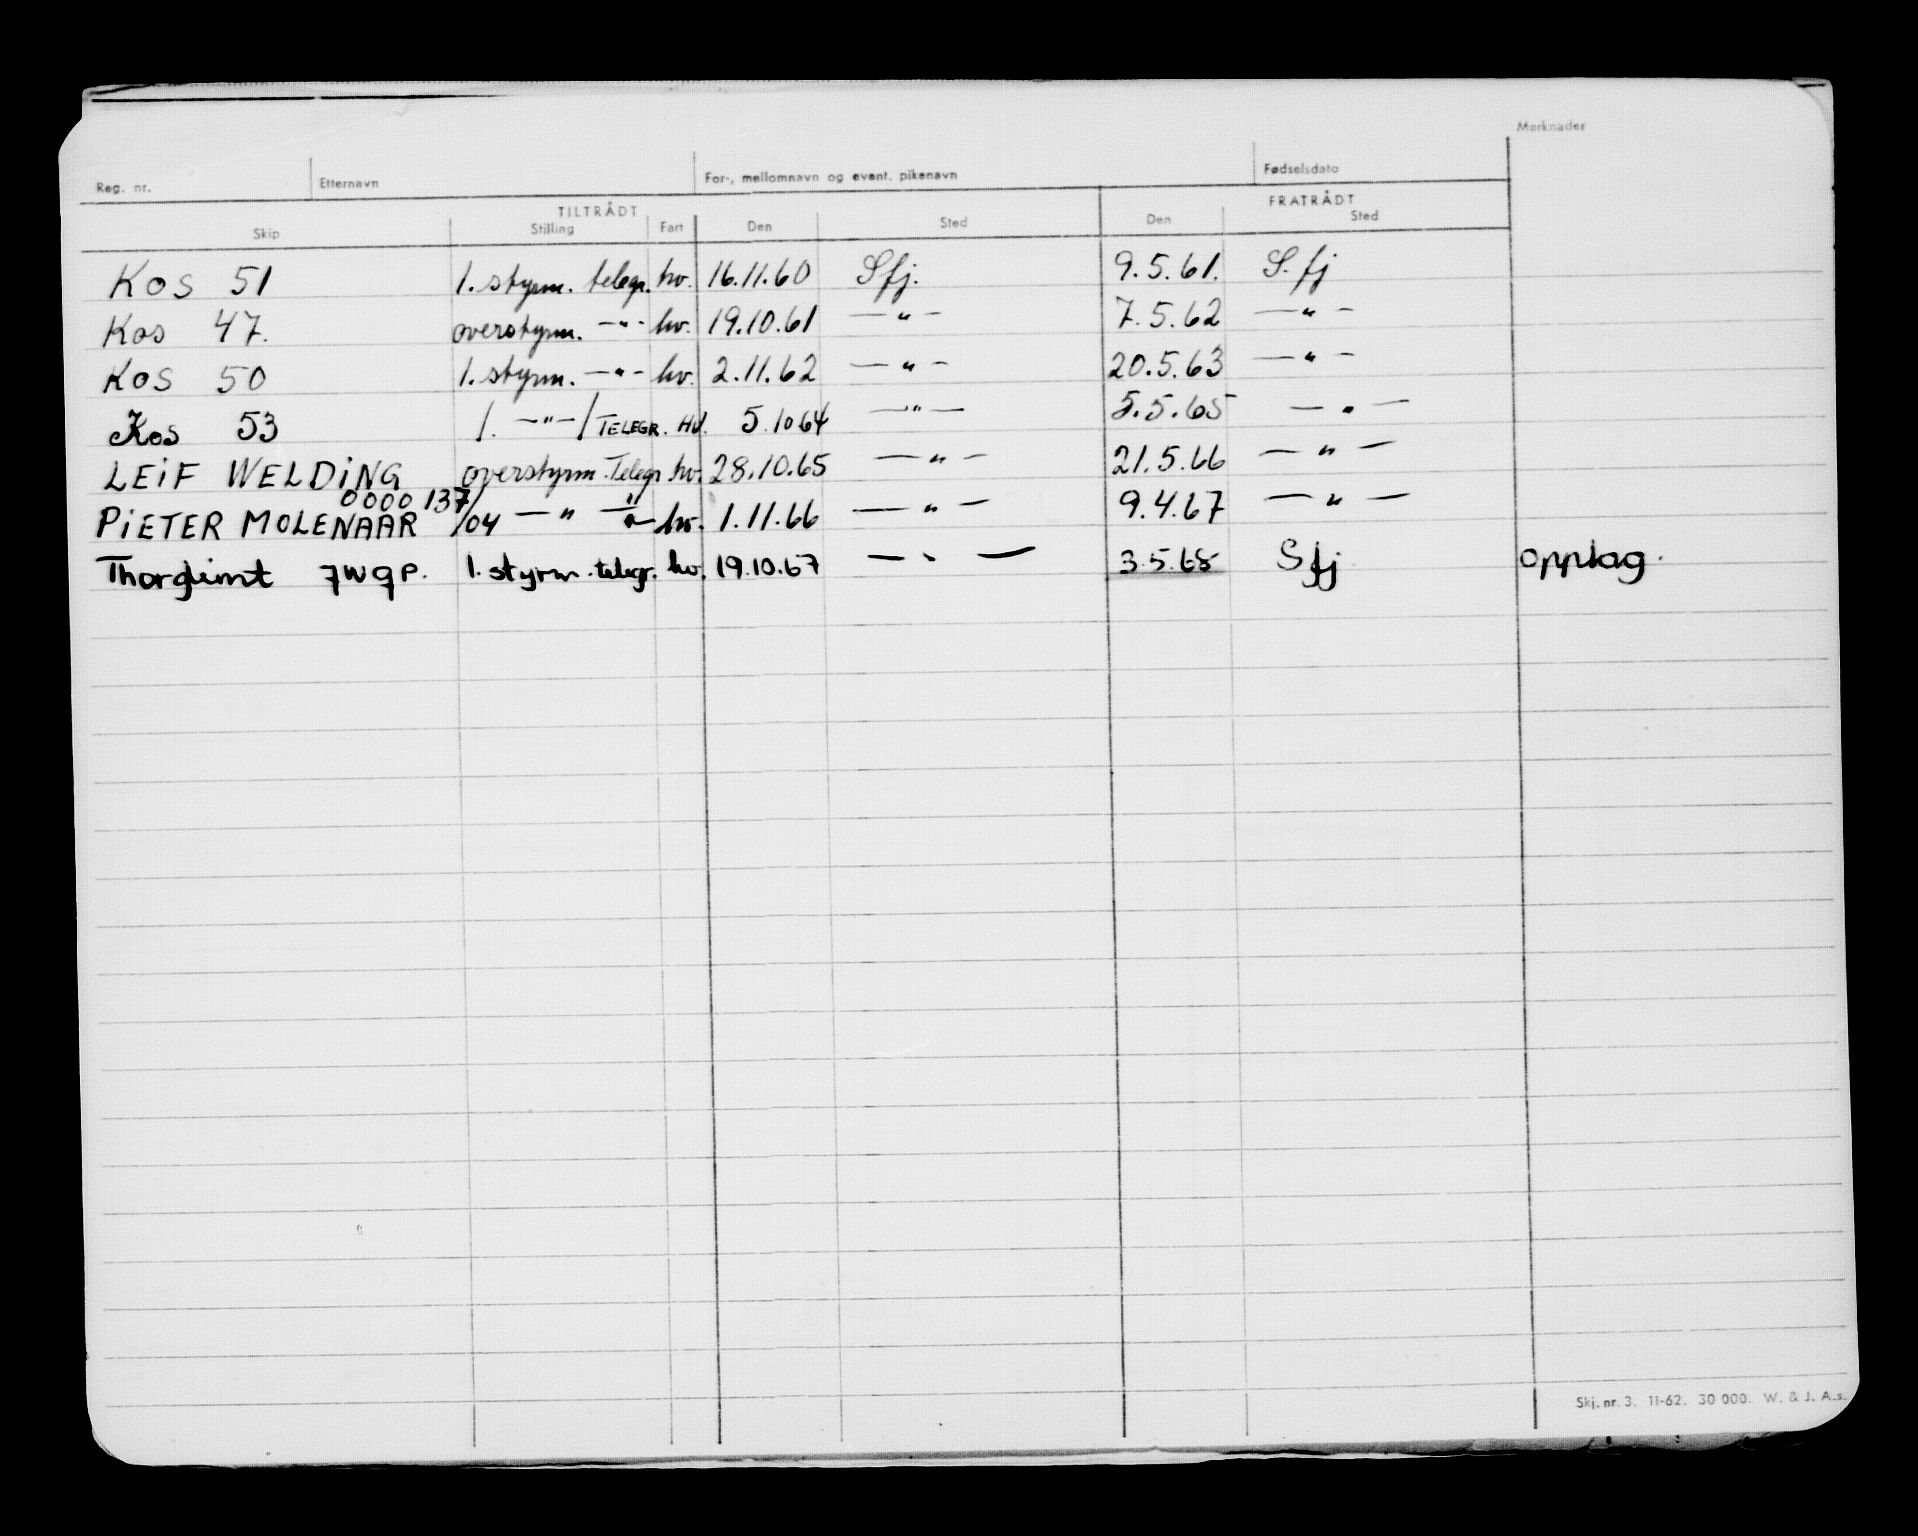 Merknader
Reg. nr. Etternavn For-, mellomnavn og event. pikenavn Fødselsdato
TILTRÅDT FRATRÅDT
Skip Stilling Fart Den Sted Den Sted
Kos 51 1. styrm. telegr. hv. 16.11.60 Sfj. 9.5.61. S. fj
Kos 47. overstyrm. —"- hv. 19.10.61 —"— 7.5.62 —"—
Kos 50 1. styrm. —"- hv. 2.11.62 —"— 20.5.63 —"—
Kos 53 1. —"—/TELEGR. HV. 5.10 64 —"— 5.5.65 —"—
LEiF WELDiNG overstyrm. Telegr hv. 28.10.65 —"— 21.5.66 —"—
0000 137/
PiETER MOLENAAR /04 —"— —"— hv. 1.11.66 —"— 9.4.67 —"—
Thorglimt 7W9P. 1. styrm. telegr. hv. 19.10.67 —"— 3.5.68 Sfj opplag.
Skj. nr. 3. 11-62. 30 000. W. & J. A.s.